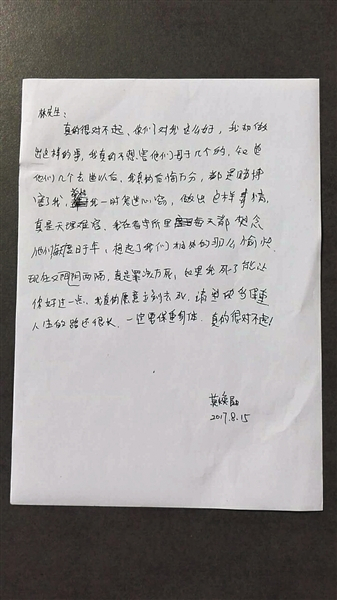 林先生:
真的很对不起、你们对我这么好，我却做
出这样的事，我真的不想害他们母子几个的，知道
他们几个去世以后，我真的后悔万分，都是赌博
害了我，我一时鬼迷心窍，做出这样事情，
真是天理难容。我在看守所里每天都想念
他们母子，想起了我们相处的那么愉快
现在又阴阳两隔，真是罪该万死，如果我死了能让
你好过一点，我真的愿意立刻去死，请你多保重
人生的路还很长，一定要保重身体，真的很对不起！
莫焕晶
2017.8.15